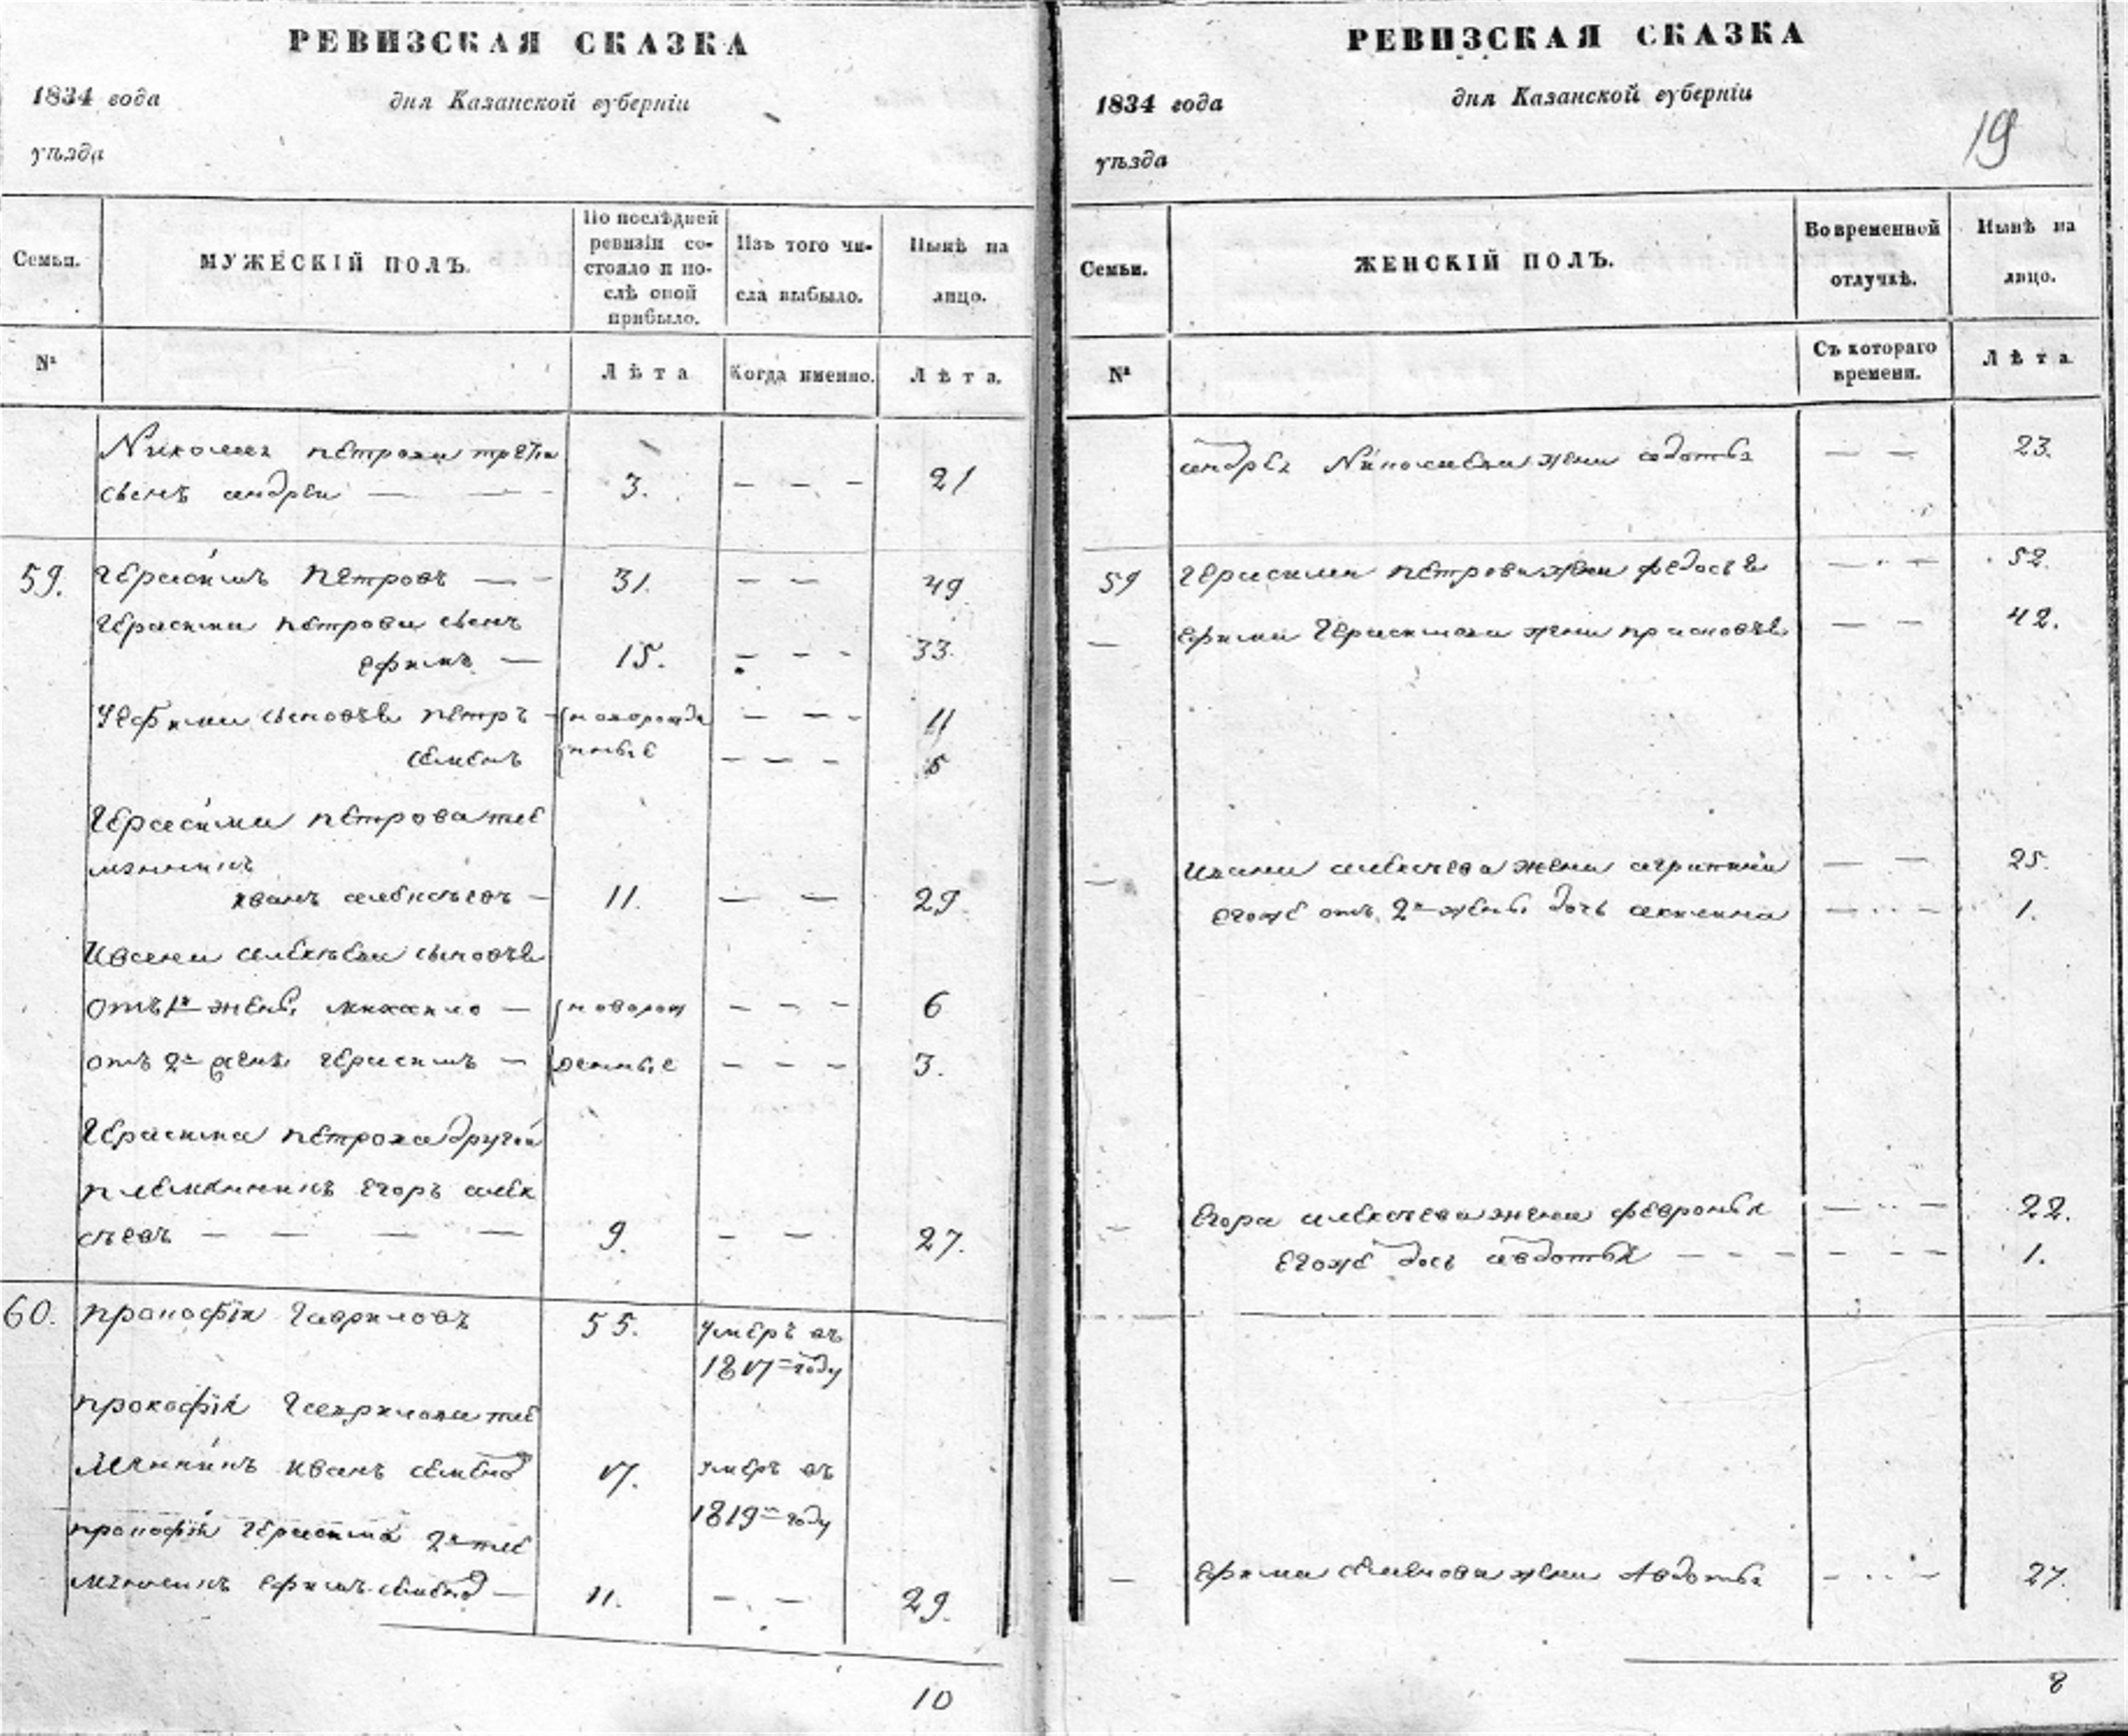 РЕВИЗСКАЯ СКАЗКА
1834 года
дня Казанской губерніи
уѣзда
Семьи.
МУЖЕСКІЙ ПОЛЪ.
По послѣдней ревизіи состояло и послѣ оной прибыло.
Изъ того числа выбыло.
Нынѣ на лицо.
№
Лѣта
Когда именно.
Лѣта.
Николая петрова третіи
сынъ андреи — 3. — — — 21
59. Герасимъ Петровъ — — 31. — — 49
Герасима петрова сынъ
ефимъ — 15. — — — 33.
У ефима сыновѣя петръ новорожде — — — 11
семенъ нные — — — 5
Герасима петрова пле
мянникъ
иванъ алексѣевъ — 11. — — 29
Ивана алексѣева сыновѣя
отъ 1й жены михаило — новорож — — — 6
отъ 2й жены герасимъ — денные — — — 3.
Герасима петрова другой
племянникъ егоръ алек
сѣевъ — — — — 9. — — 27.
60. прокофій Гавриловъ 55. умеръ въ
1817 году
прокофія Гаврилова пле
мянникъ иванъ семенов 17. умеръ въ
1819 году
прокофія 2й пле
мянникъ ефимъ семенов — 11. — — 29.
10
РЕВИЗСКАЯ СКАЗКА
1834 года
дня Казанской губерніи
19
уѣзда
Семьи.
ЖЕНСКІЙ ПОЛЪ.
Во временной отлучкѣ.
Нынѣ на лицо.
№
Съ котораго времени.
Лѣта
андрея Николаева жена авдотья — — 23.
59 Герасима петрова жена федосья — — 52.
— ефима Герасимова жена прасковья — — 42.
— ивана алексѣева жена аграпина — — 25.
егоже отъ 2й жены дочь — — 1.
— Егора алексѣева жена февронья — — 22.
егоже дочь авдотья — — — — — — 1.
— ефима семенова жена Авдотья — — 27.
8